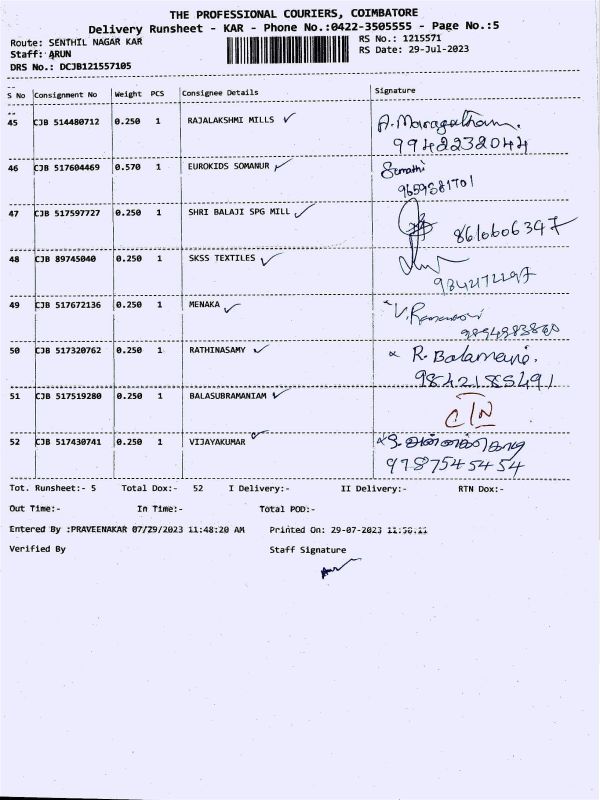 THE PROFESSIONAL COURIERS, COIMBATORE
Delivery Runsheet - KAR - Phone No.:0422-3505555 - Page No.:5
Route: SENTHIL NAGAR KAR RS No.: 1215571
Staff: ARUN RS Date: 29-Jul-2023
DRS No.: DCJB121557105
S No Consignment No Weight PCS Consignee Details Signature
45 CJB 514480712 0.250 1 RAJALAKSHMI MILLS A. Maragatham.
9942232044
46 CJB 517604469 0.570 1 EUROKIDS SOMANUR Sumathi
9659381701
47 CJB 517597727 0.250 1 SHRI BALAJI SPG MILL
8610606347
48 CJB 89745040 0.250 1 SKSS TEXTILES
49 CJB 517672136 0.250 1 MENAKA
50 CJB 517320762 0.250 1 RATHINASAMY R. Balamani.
9842185491
51 CJB 517519280 0.250 1 BALASUBRAMANIAM
52 CJB 517430741 0.250 1 VIJAYAKUMAR
9787545454
Tot. Runsheet:- 5 Total Dox:- 52 I Delivery:- II Delivery:- RTN Dox:-
Out Time:- In Time:- Total POD:-
Entered By :PRAVEENAKAR 07/29/2023 11:48:20 AM Printed On: 29-07-2023
Verified By Staff Signature